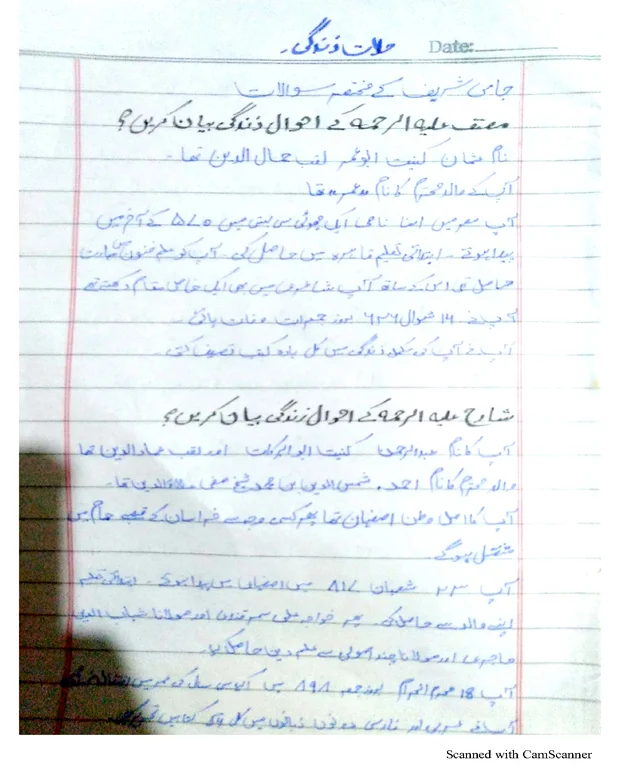 حالات زندگی۔ Date:
جامی شریف کے مختصر سوالات
مصنف علیہ الرحمہ کے احوال زندگی بیان کریں؟
نام عثمان کنیت ابو عمر لقب جمال الدین تھا۔
آپ کے والد محترم کا نام عمر تھا
آپ مصر میں اسنا نامی ایک چھوٹی سی بستی میں ۵۷۰ کے آخر میں
پیدا ہوئے۔ ابتدائی تعلیم قاہرہ میں حاصل کی۔ آپ کو علم فنون میں مہارت
حاصل تھی اس کے ساتھ آپ شاعری میں بھی ایک خاص مقام رکھتے تھے
آپ نے ۱۶ شوال ۶۴۶ بروز جمعرات وفات پائی۔
آپ نے آپ کی زندگی میں کل کتب تصنیف کتی۔
شارح علیہ الرحمہ کے احوال زندگی بیان کریں؟
آپ کا نام عبدالرحمن کنیت ابو البرکات اور لقب عماد الدین تھا
والد محترم کا نام احمد، شمس الدین بن محمد تھا۔
آپ کا اصل وطن اصفہان تھا پھر کسی وجہ سے خراسان کے قصبے جام میں
منتقل ہو گے۔
آپ ۲۳ شعبان ۸۱۷ میں پیدا ہوئے۔ ابتدائی تعلیم
اپنے والد سے حاصل کی۔ پھر خواجہ علی سمرقندی اور مولانا شہاب الدین
جاجرمی اور مولانا جند اصولی سے علم دین حاصل کیا۔
آپ 18 محرم الحرام بروز جمعہ ۸۹۸ میں سال کی عمر میں
آپ نے عربی اور فارسی دونوں زبانوں میں کل کتابیں
Scanned with CamScanner